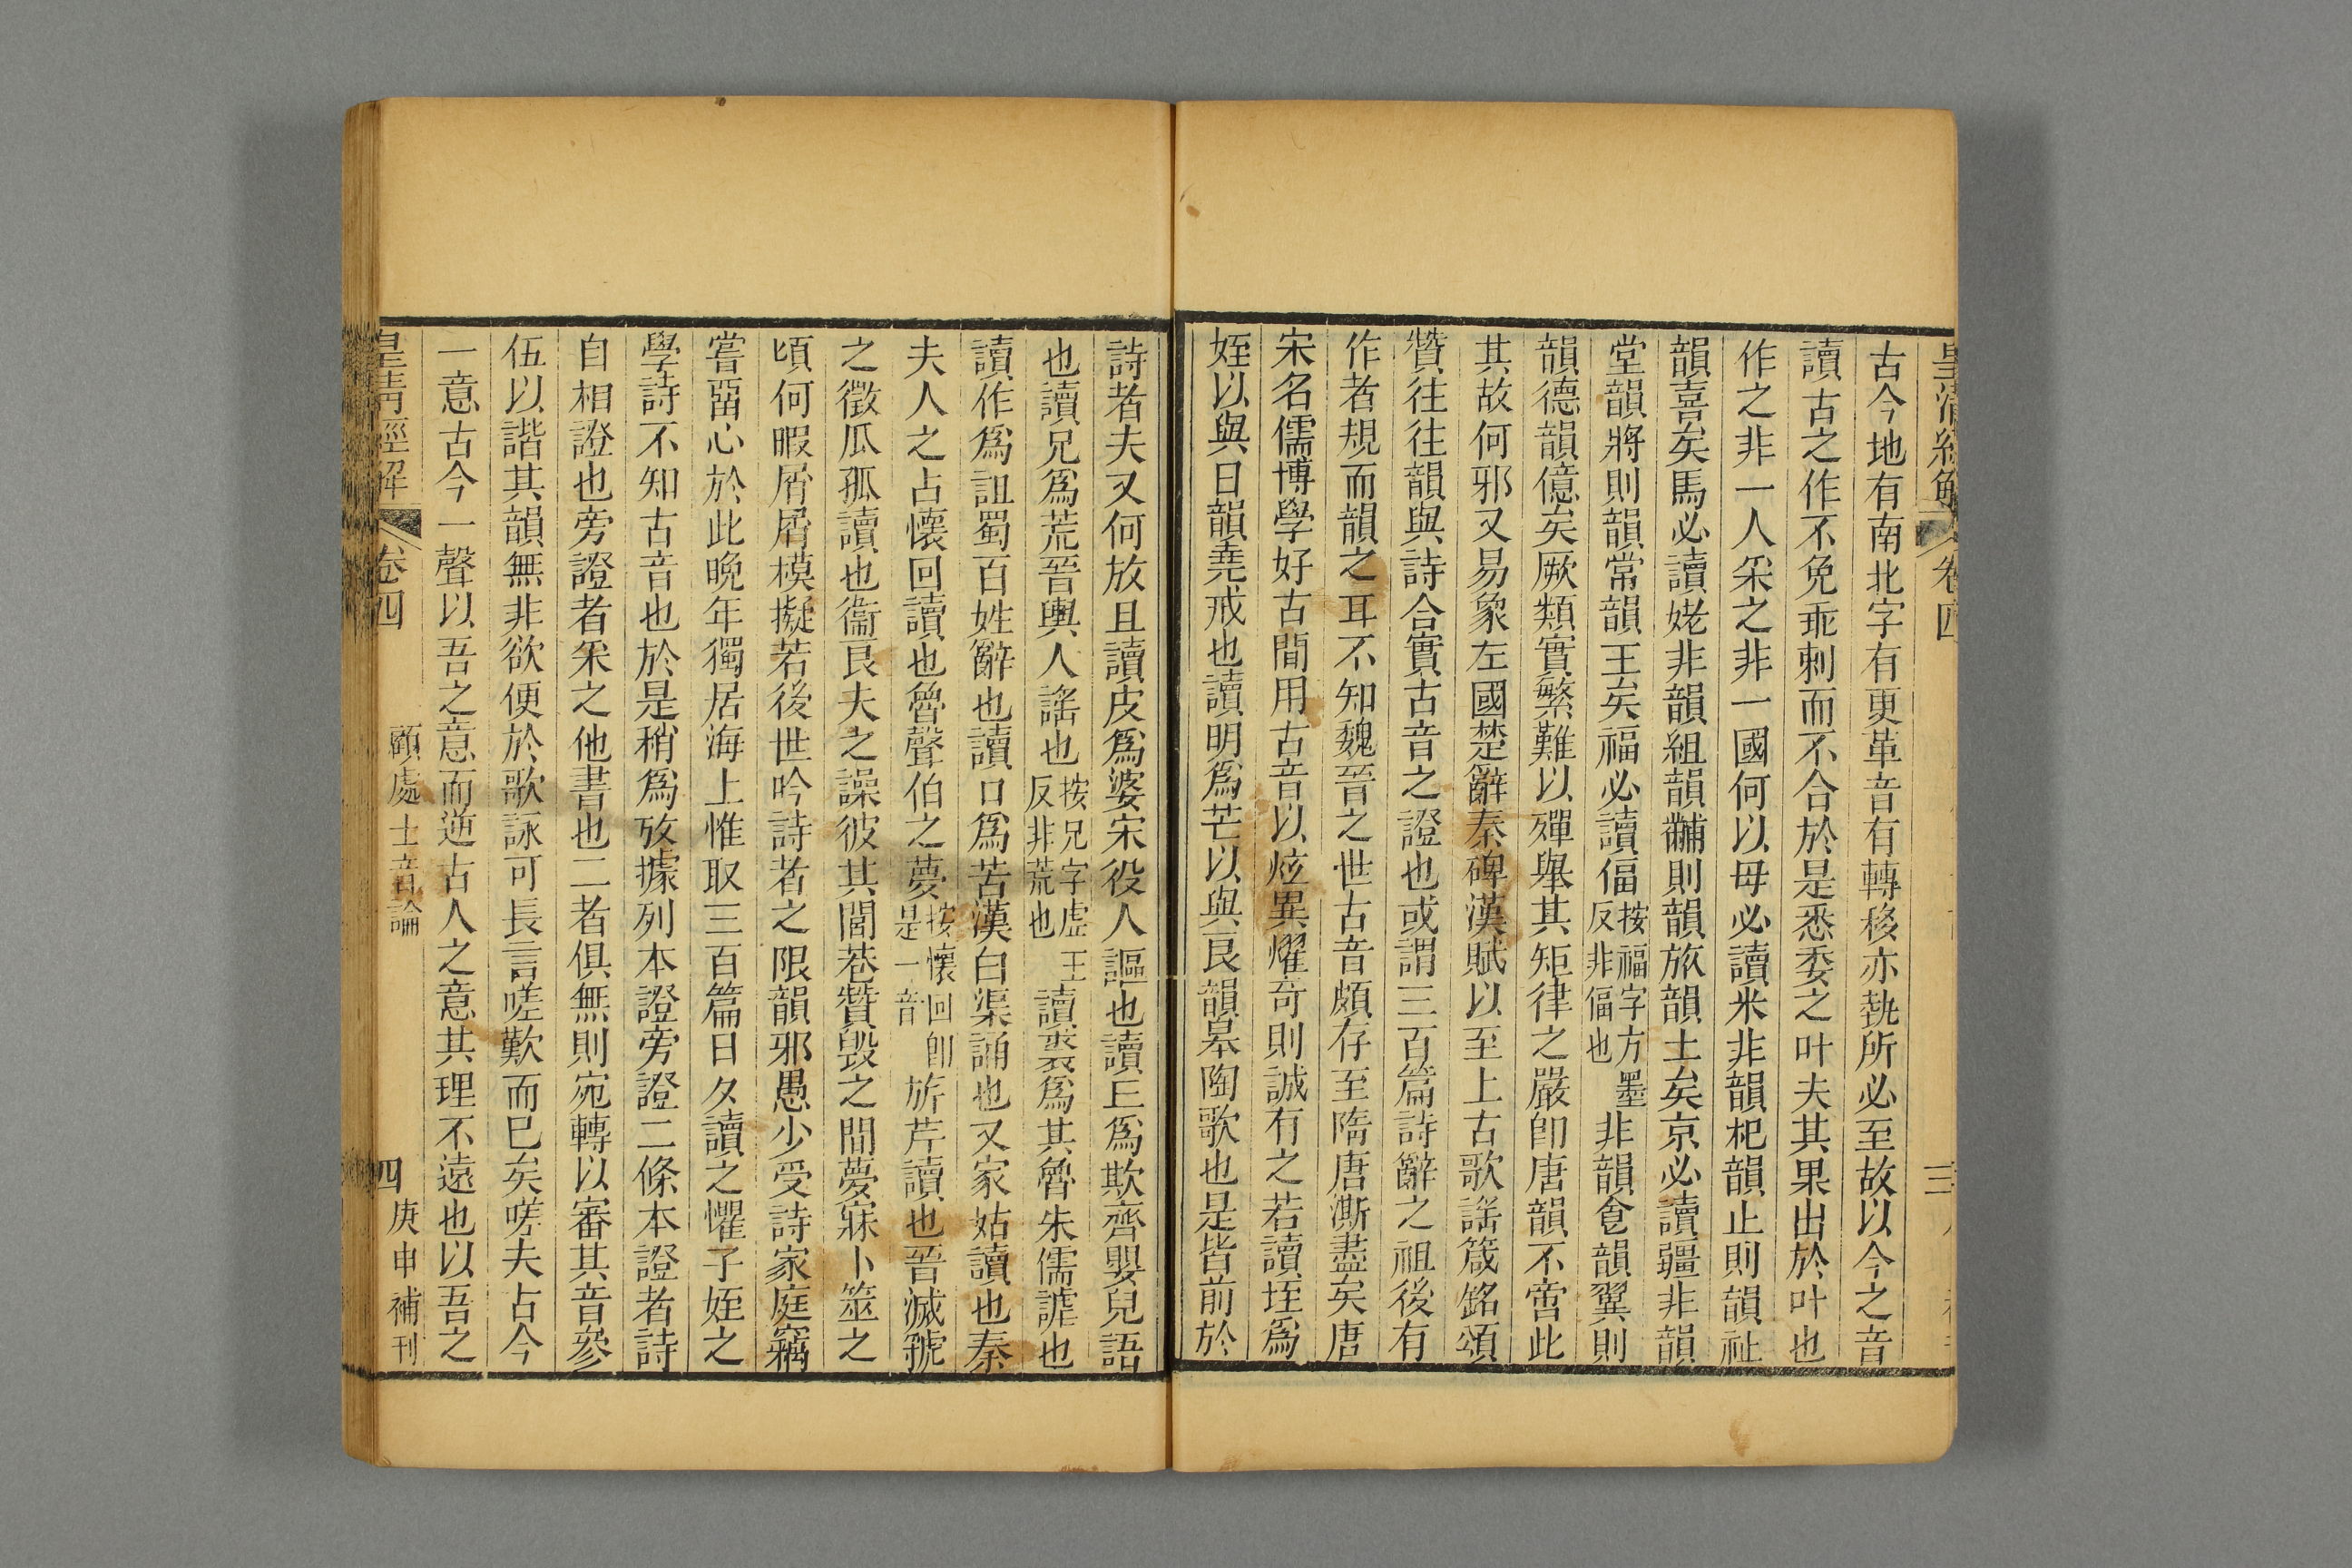 皇清經解 卷四 三
古今地有南北字有更革音有轉移亦執所必至故以今之音
讀古之作不免乖剌而不合於是悉委之叶夫其果出於叶也
作之非一人采之非一國何以母必讀米非韻杞韻止則韻祉
韻喜矣馬必讀姥非韻組韻黼則韻旅韻土矣京必讀疆非韻
堂韻將則韻常韻王矣福必讀偪按福字方墨反非偪也非韻食韻翼則
韻德韻億矣厥類實繁難以殫舉其矩律之嚴卽唐韻不啻此
其故何邪又易象左國楚辭秦碑漢賦以至上古歌謠箴銘頌
贊往往韻與詩合實古音之證也或謂三百篇詩辭之祖後有
作者規而韻之耳不知魏晉之世古音頗存至隋唐澌盡矣唐
宋名儒博學好古間用古音以炫異燿奇則誠有之若讀垤爲
姪以與日韻堯戒也讀明爲芒以與艮韻皋陶歌也是皆前於
詩者夫又何放且讀皮爲婆宋役人謳也讀丘爲欺齊嬰兒語
也讀兄爲荒晉輿人謠也按兄字虛王反非荒也讀裘爲其魯朱儒謔也
讀作爲詛蜀百姓辭也讀口爲苦漢白渠誦也又家姑讀也秦
夫人之占懷回讀也魯聲伯之夢按懷回卽是一音旂芹讀也晉滅虢
之徵瓜孤讀也衞良夫之譟彼其閭巷贊毀之間夢寐卜筮之
頃何暇屑屑模擬若後世吟詩者之限韻邪愚少受詩家庭竊
嘗留心於此晚年獨居海上惟取三百篇日夕讀之懼子姪之
學詩不知古音也於是稍爲攷據列本證旁證二條本證者詩
自相證也旁證者采之他書也二者俱無則宛轉以審其音參
伍以諧其韻無非欲便於歌詠可長言嗟歎而已矣嗟夫古今
一意古今一聲以吾之意而逆古人之意其理不遠也以吾之
皇清經解 卷四 顧處士音論 四 庚申補刊